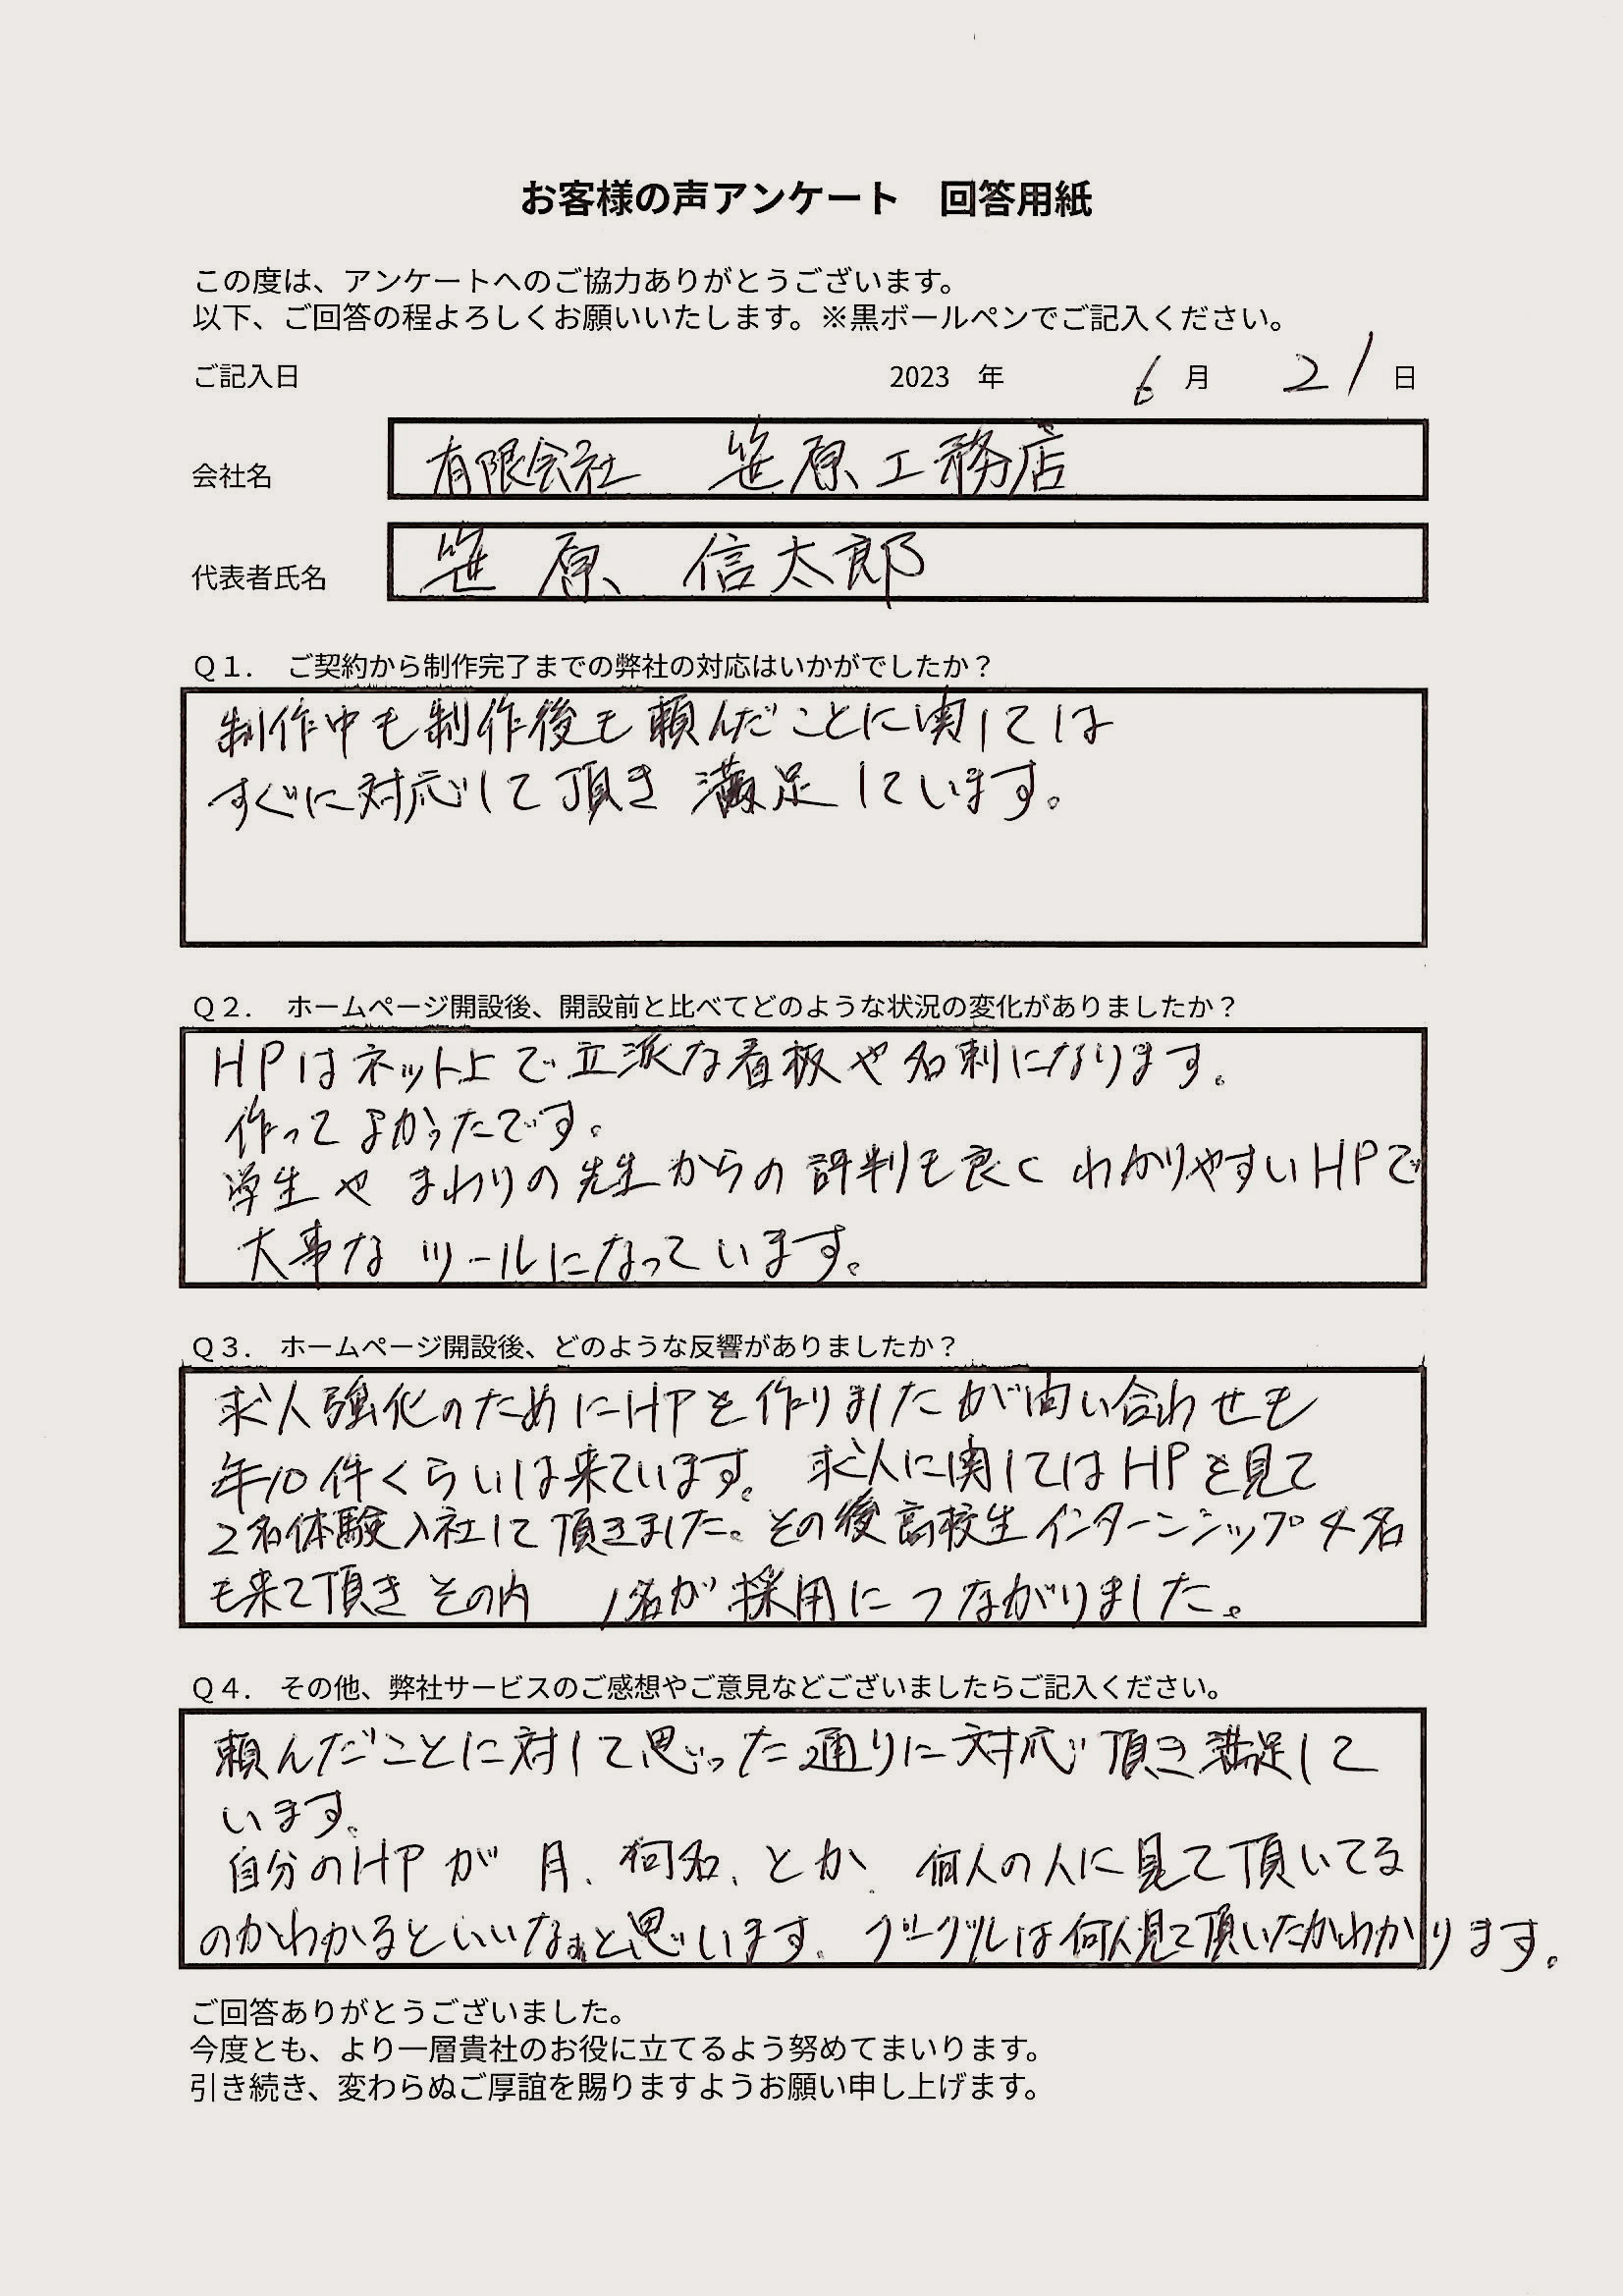 お客様の声アンケート　回答用紙
この度は、アンケートへのご協力ありがとうございます。
以下、ご回答の程よろしくお願いいたします。※黒ボールペンでご記入ください。
ご記入日　2023　年　6　月　21　日
会社名　有限会社　笹原工務店
代表者氏名　笹原　信太郎
Q1.　ご契約から制作完了までの弊社の対応はいかがでしたか？
制作中も制作後も頼んだことに関しては
すぐに対応して頂き満足しています。
Q2.　ホームページ開設後、開設前と比べてどのような状況の変化がありましたか？
HPはネット上で立派な看板や名刺になります。
作ってよかったです。
学生やまわりの先生からの評判も良くわかりやすいHPで
大事なツールになっています。
Q3.　ホームページ開設後、どのような反響がありましたか？
求人強化のためにHPを作りましたが問い合わせも
年10件くらいは来ています。求人に関してはHPを見て
2名体験入社して頂きました。その後高校生インターンシップ4名
も来て頂きその内　1名が採用につながりました。
Q4.　その他、弊社サービスのご感想やご意見などございましたらご記入ください。
頼んだことに対して思った通りに対応頂き満足して
います。
自分のHPが月、何名、とか、何人の人に見て頂いてる
のかわかるといいなぁと思います。グーグルは何人見て頂いたかわかります。
ご回答ありがとうございました。
今度とも、より一層貴社のお役に立てるよう努めてまいります。
引き続き、変わらぬご厚誼を賜りますようお願い申し上げます。